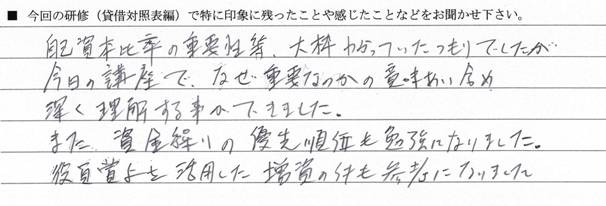 ■ 今回の研修（貸借対照表編）で特に印象に残ったことや感じたことなどをお聞かせ下さい。
自己資本比率の重要性等、大枠わかっていたつもりでしたが
今日の講座で、なぜ重要なのかの意味あい含め
深く理解する事ができました。
また、資金繰りの優先順位も勉強になりました。
役員賞与を活用した増資の件も参考になりました